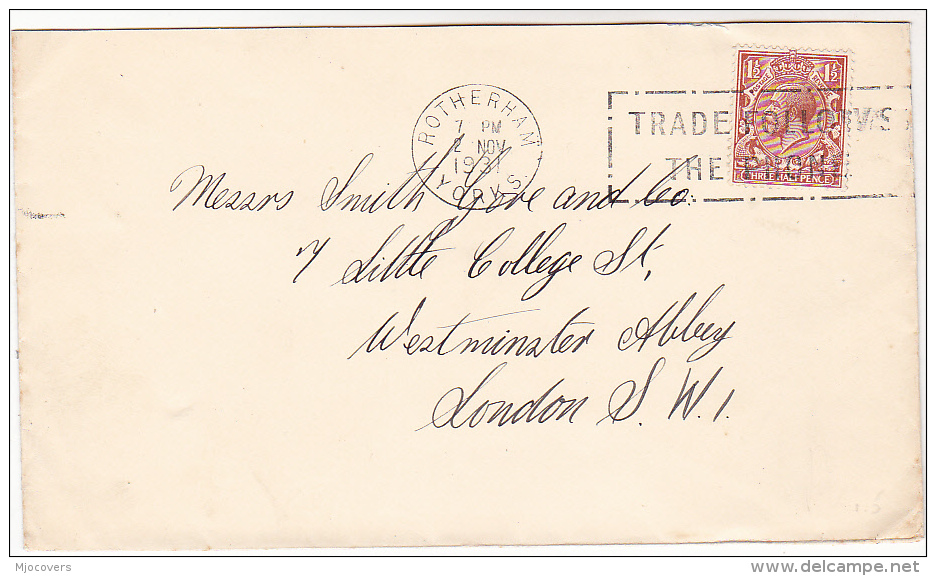 ROTHERHAM
7 PM
2 NOV
1931
YORKS
TRADE FOLLOWS
THE PHONE
1½ 1½
POSTAGE REVENUE
THREE HALFPENCE
Messrs Smith Gore and Co.
7 Little College St,
Westminster Abbey
London S.W.1.
Mjocovers
delcampe.net